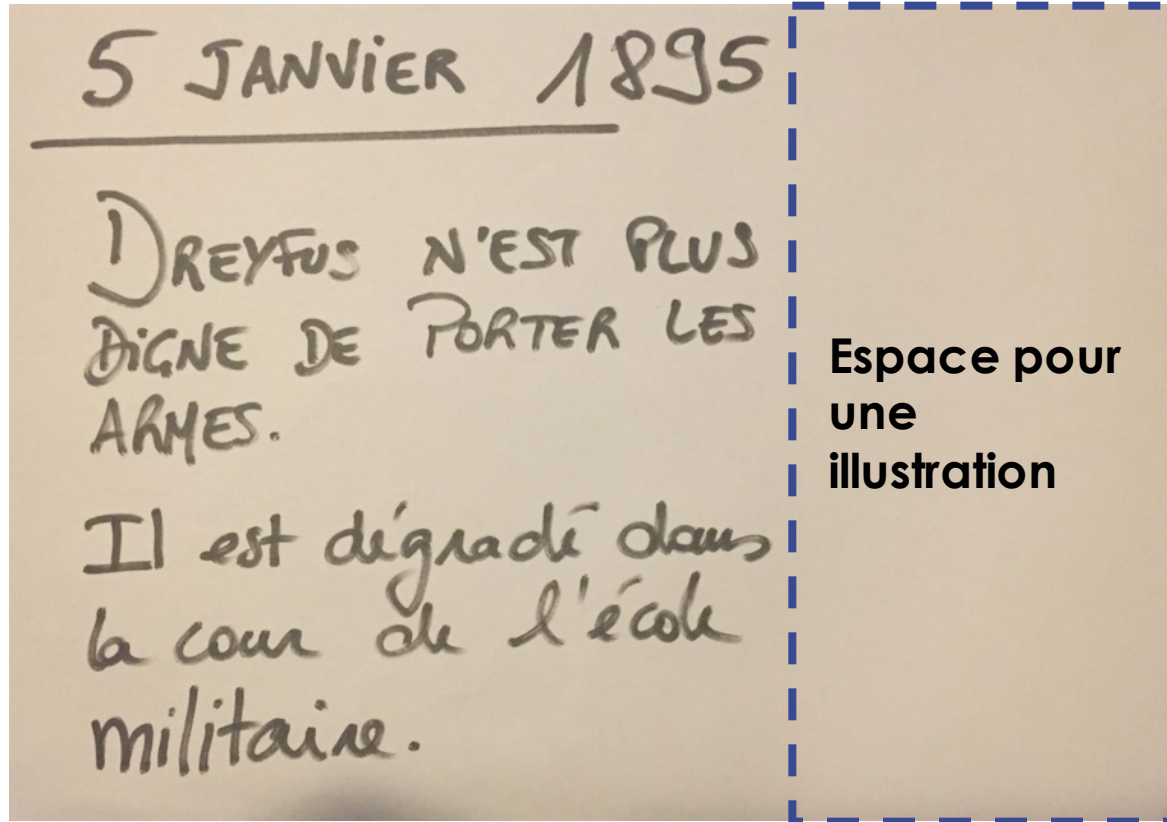 5 JANVIER 1895
DREYFUS N'EST PLUS
DIGNE DE PORTER LES
ARMES.
Il est dégradé dans
la cour de l'école
militaire.
Espace pour
une
illustration